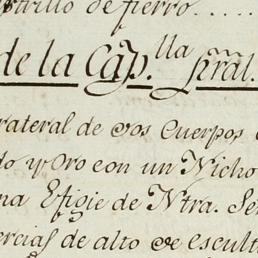 strillo de fierro.....
de la Cap.lla Rral.
rateral de dos Cuerpos
do y Oro con un Nicho
na Efigie de Ntra. Señ
ercias de alto de escult